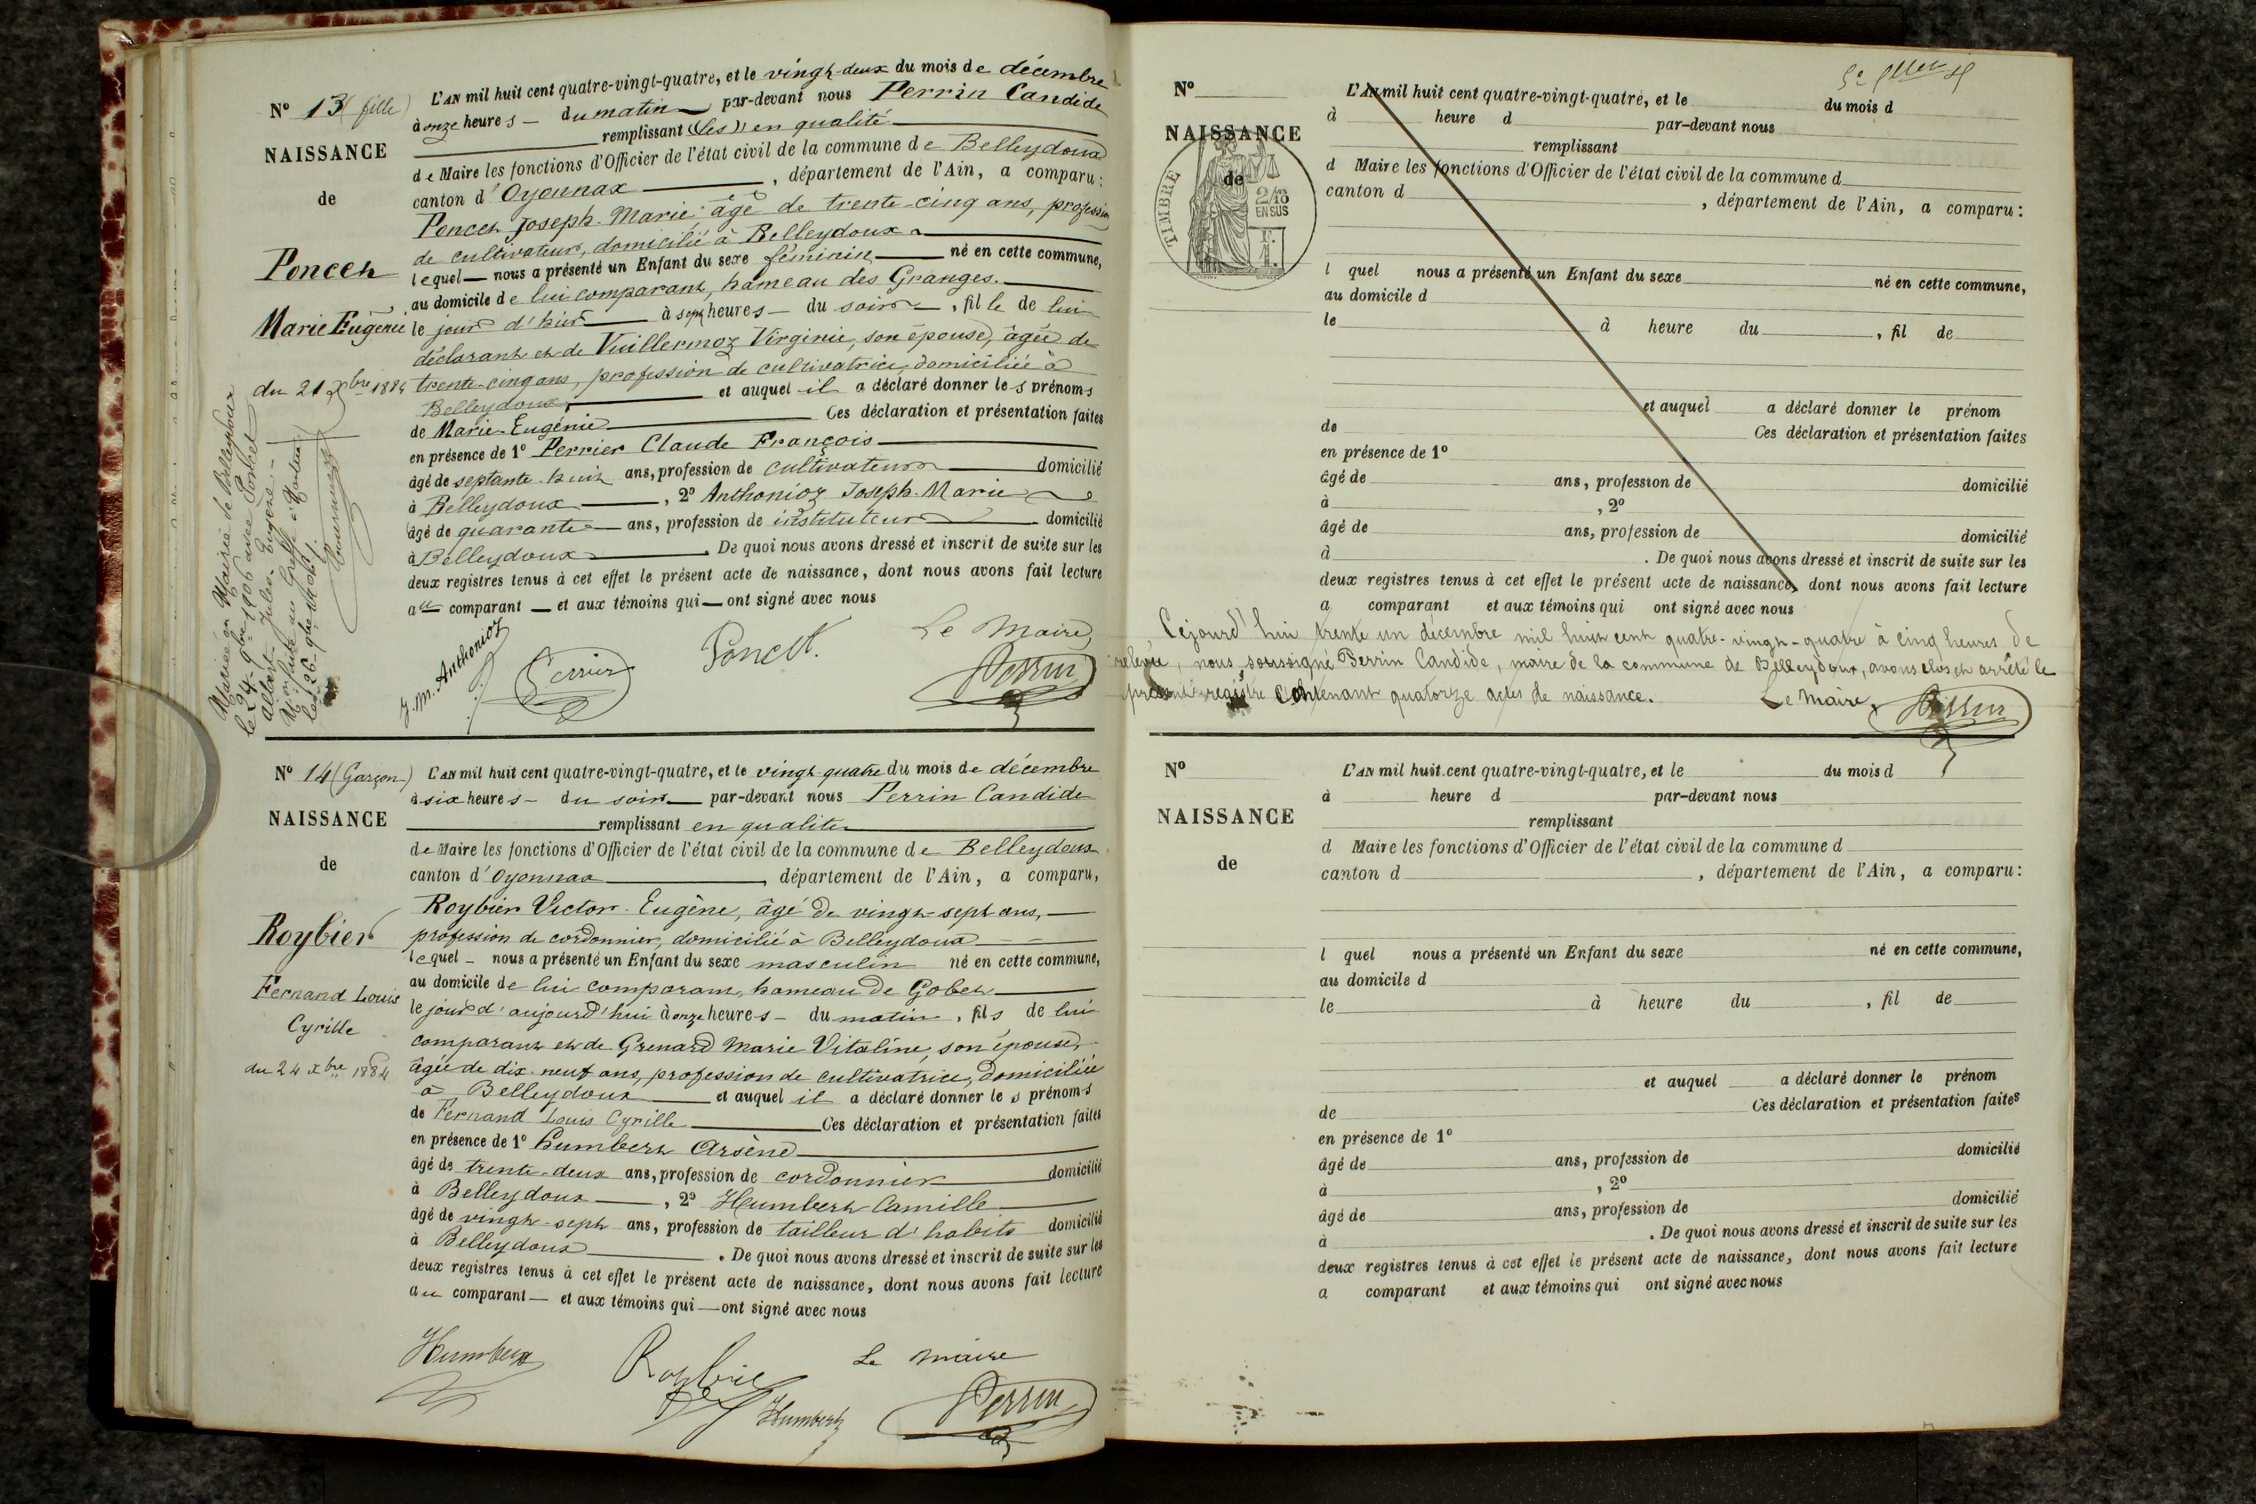 N° 13 (fille)
NAISSANCE
de
Poncet
Marie Eugénie
du 21 Xbre 1884
Mariée en Mairie de Belleydoux
le 24 9bre 1906 avec Poncet
Albert Jules Eugène
L'AN mil huit cent quatre-vingt-quatre, et le vingt-deux du mois de décembre
à onze heures du matin par-devant nous Perrin Candide
remplissant (les) en qualité
de Maire les fonctions d'Officier de l'état civil de la commune de Belleydoux
canton d'Oyonnax, département de l'Ain, a comparu :
Poncet Joseph-Marie âgé de trente-cinq ans, profession
de cultivateur, domicilié à Belleydoux
lequel nous a présenté un Enfant du sexe féminin né en cette commune,
au domicile de lui comparant, hameau des Granges.
le jour d'hier à sept heures du soir, fille de lui
déclarant et de Vuillermoz Virginie, son épouse, âgée de
trente-cinq ans, profession de cultivatrice, domiciliée à
Belleydoux, et auquel il a déclaré donner les prénoms
de Marie-Eugénie Ces déclaration et présentation faites
en présence de 1° Perrier Claude François
âgé de septante-huit ans, profession de cultivateur domicilié
à Belleydoux, 2° Anthonioz Joseph-Marie
âgé de quarante ans, profession de instituteur domicilié
à Belleydoux. De quoi nous avons dressé et inscrit de suite sur les
deux registres tenus à cet effet le présent acte de naissance, dont nous avons fait lecture
au comparant et aux témoins qui ont signé avec nous
Le Maire,
J. M. Anthonioz Perrier Poncet Perrin
N° 14 (Garçon)
NAISSANCE
de
Roybier
Fernand Louis
Cyrille
du 24 Xbre 1884
L'AN mil huit cent quatre-vingt-quatre, et le vingt-quatre du mois de décembre
à six heures du soir par-devant nous Perrin Candide
remplissant en qualité
de Maire les fonctions d'Officier de l'état civil de la commune de Belleydoux
canton d'Oyonnax, département de l'Ain, a comparu,
Roybier Victor-Eugène, âgé de vingt-sept ans,
profession de cordonnier, domicilié à Belleydoux
lequel nous a présenté un Enfant du sexe masculin né en cette commune,
au domicile de lui comparant, hameau de Gobet
le jour d'aujourd'hui à onze heures du matin, fils de lui
comparant et de Grenard Marie Vitaline, son épouse,
âgée de dix-neuf ans, profession de cultivatrice, domiciliée
à Belleydoux et auquel il a déclaré donner les prénoms
de Fernand Louis Cyrille Ces déclaration et présentation faites
en présence de 1° Humbert Arsène
âgé de trente-deux ans, profession de cordonnier domicilié
à Belleydoux, 2° Humbert Camille
âgé de vingt-sept ans, profession de tailleur d'habits domicilié
à Belleydoux. De quoi nous avons dressé et inscrit de suite sur les
deux registres tenus à cet effet le présent acte de naissance, dont nous avons fait lecture
au comparant et aux témoins qui ont signé avec nous
Le Maire
Humbert Roybier Humbert Perrin
N°
NAISSANCE
de
TIMBRE
2/10
EN SUS
L'AN mil huit cent quatre-vingt-quatre, et le du mois d
à heure d par-devant nous
remplissant
d Maire les fonctions d'Officier de l'état civil de la commune d
canton d , département de l'Ain, a comparu :
l quel nous a présenté un Enfant du sexe né en cette commune,
au domicile d
le à heure du , fil de
et auquel a déclaré donner le prénom
de Ces déclaration et présentation faites
en présence de 1°
âgé de ans, profession de domicilié
à , 2°
âgé de ans, profession de domicilié
à . De quoi nous avons dressé et inscrit de suite sur les
deux registres tenus à cet effet le présent acte de naissance, dont nous avons fait lecture
a comparant et aux témoins qui ont signé avec nous
Cejourd'hui trente un décembre mil huit cent quatre-vingt-quatre à cinq heures de
relevée, nous soussigné Perrin Candide, maire de la commune de Belleydoux, avons clos et arrêté le
présent registre contenant quatorze actes de naissance. Le Maire, Perrin
N°
NAISSANCE
de
L'AN mil huit cent quatre-vingt-quatre, et le du mois d
à heure d par-devant nous
remplissant
d Maire les fonctions d'Officier de l'état civil de la commune d
canton d , département de l'Ain, a comparu :
l quel nous a présenté un Enfant du sexe né en cette commune,
au domicile d
le à heure du , fil de
et auquel a déclaré donner le prénom
de Ces déclaration et présentation faites
en présence de 1°
âgé de ans, profession de domicilié
à , 2°
âgé de ans, profession de domicilié
à . De quoi nous avons dressé et inscrit de suite sur les
deux registres tenus à cet effet le présent acte de naissance, dont nous avons fait lecture
a comparant et aux témoins qui ont signé avec nous